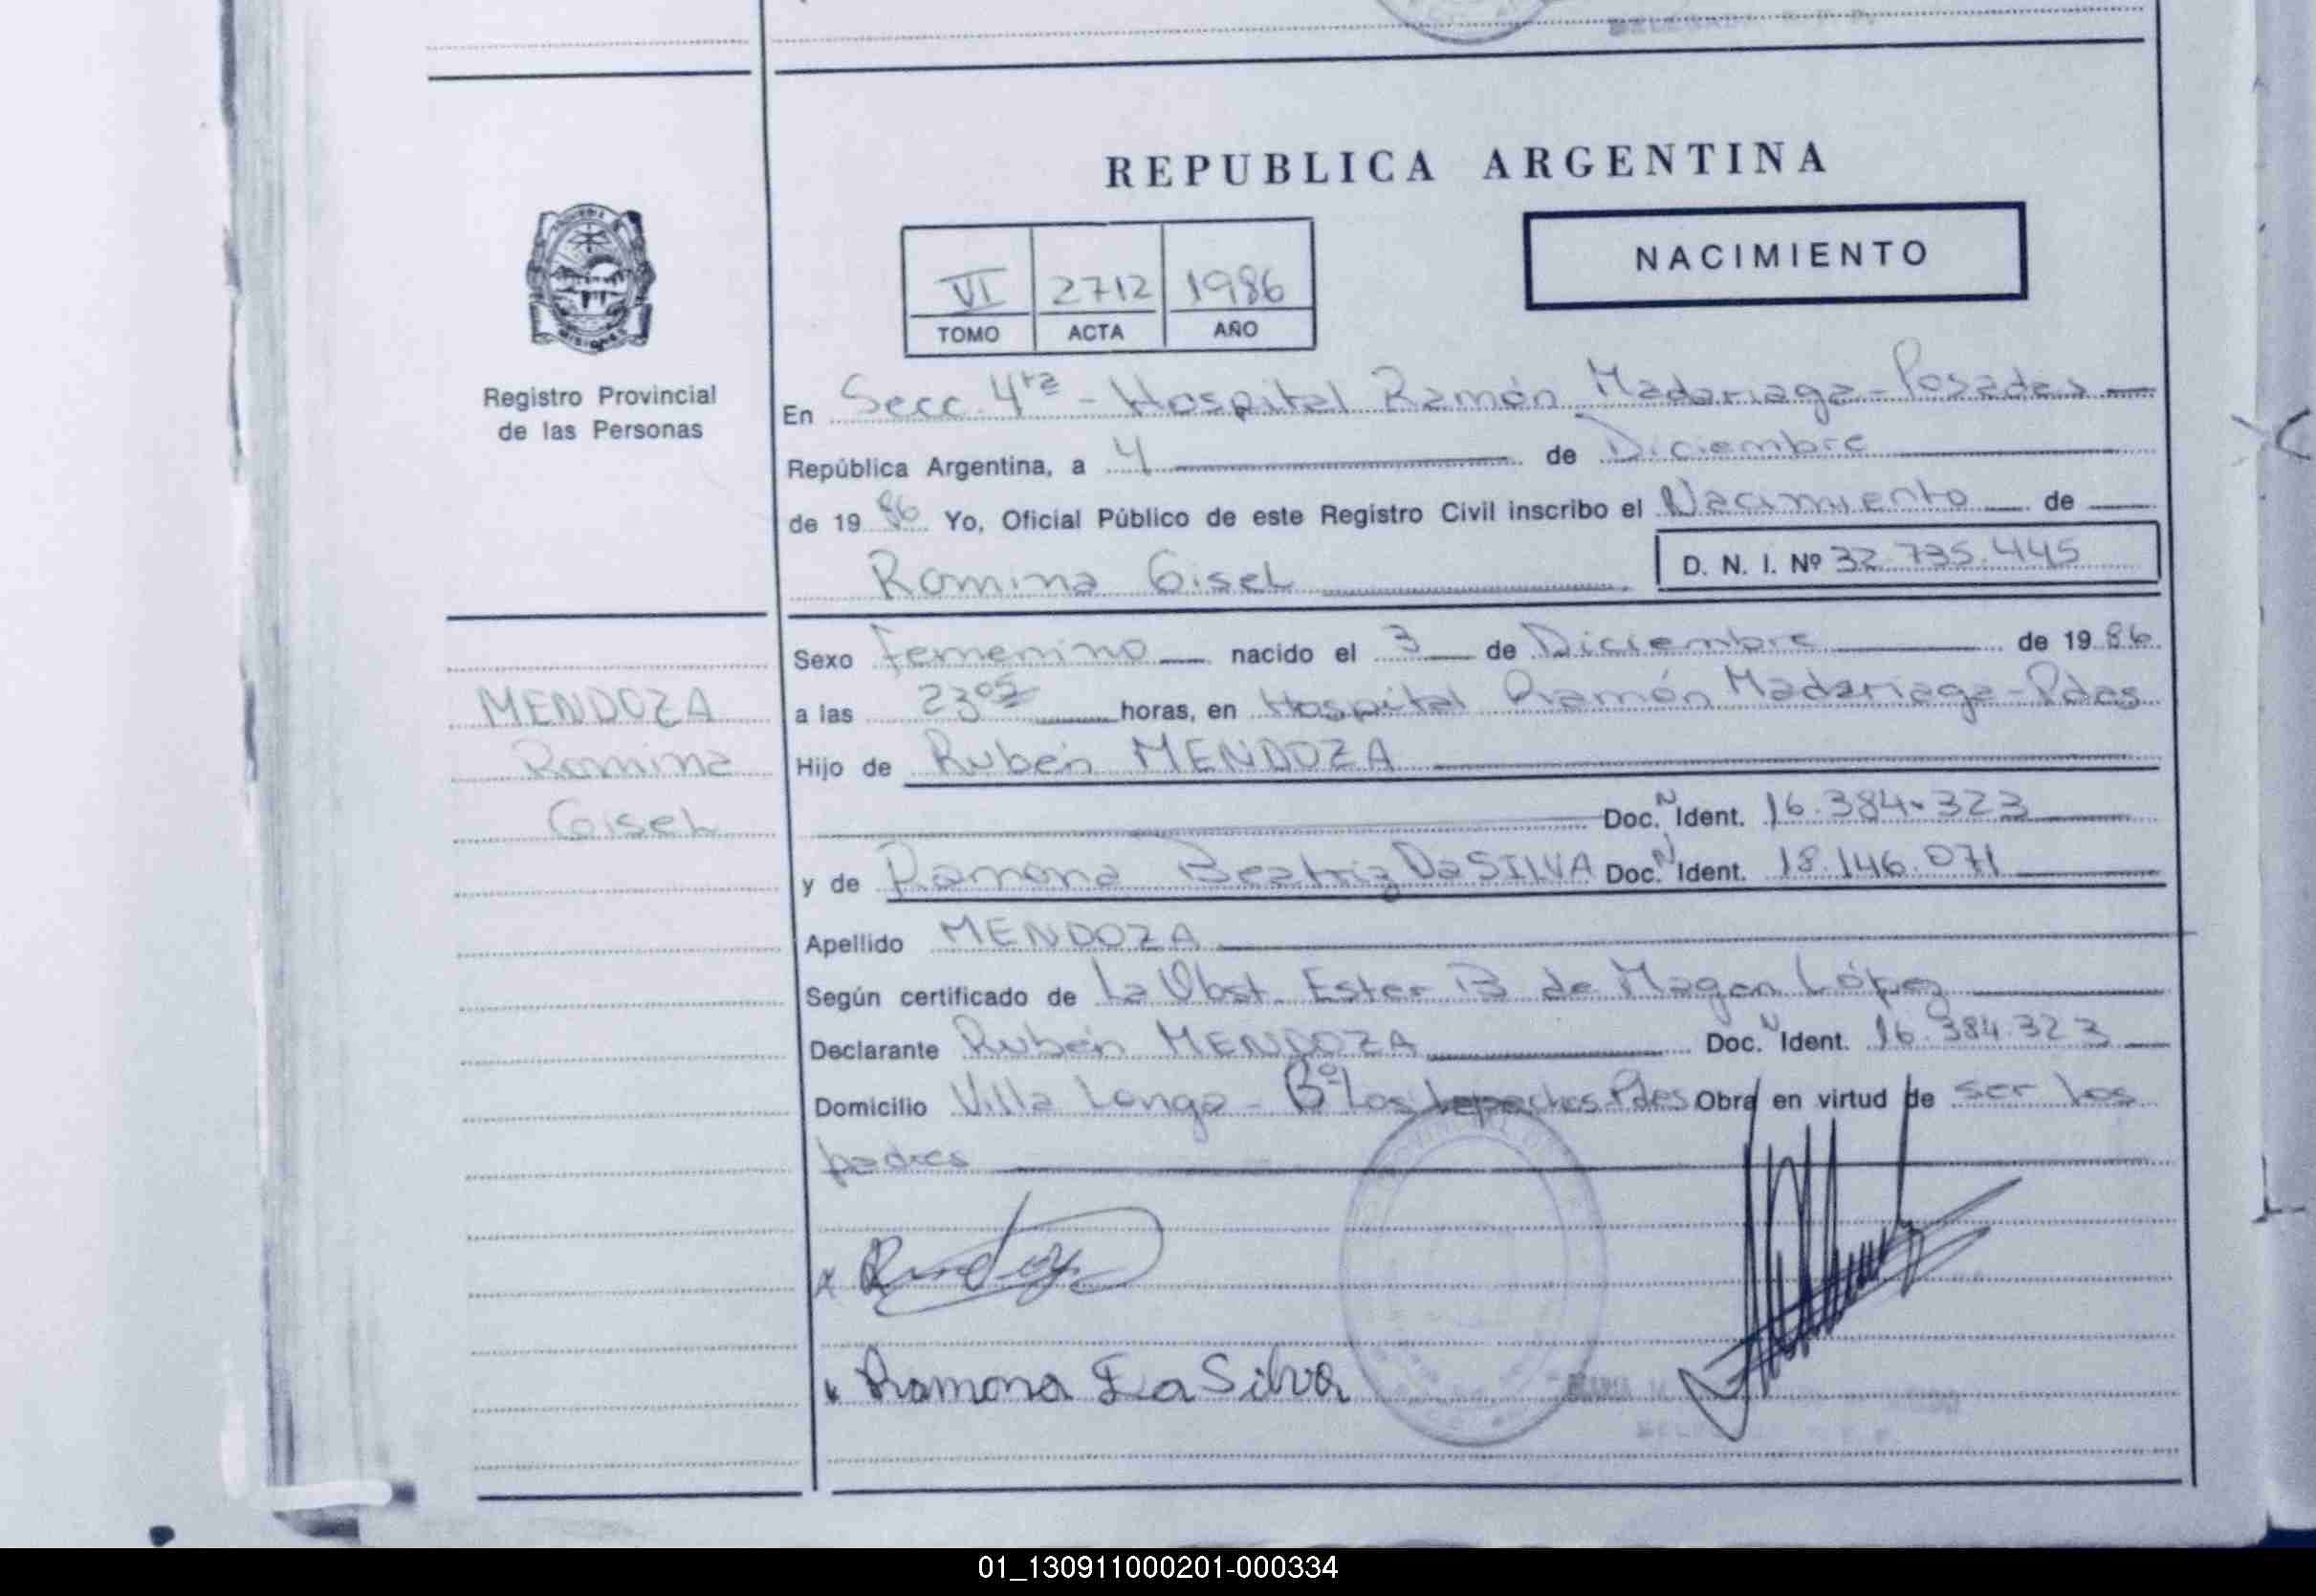 REPUBLICA ARGENTINA
NACIMIENTO
VI 2712 1986
TOMO ACTA AÑO
MISIONES
Registro Provincial
de las Personas
En Secc. 4ta - Hospital Ramón Madariaga - Posadas
República Argentina, a 4 de Diciembre
de 1986 Yo, Oficial Público de este Registro Civil inscribo el Nacimiento de
Romina Gisel D. N. I. Nº 32.735.445
MENDOZA
Romina
Gisel
Sexo femenino nacido el 3 de Diciembre de 1986
a las 23 05 horas, en Hospital Ramón Madariaga - Pdas
Hijo de Rubén MENDOZA
Doc. N Ident. 16.384.323
y de Ramona Beatriz Da SILVA Doc. N Ident. 18.146.071
Apellido MENDOZA
Según certificado de La Obst. Ester B de Magan López
Declarante Rubén MENDOZA Doc. N Ident. 16.384.323
Domicilio Villa Longa - Bº Los Pdas Obra en virtud de ser los
padres
Ramona Da Silva
01_130911000201-000334